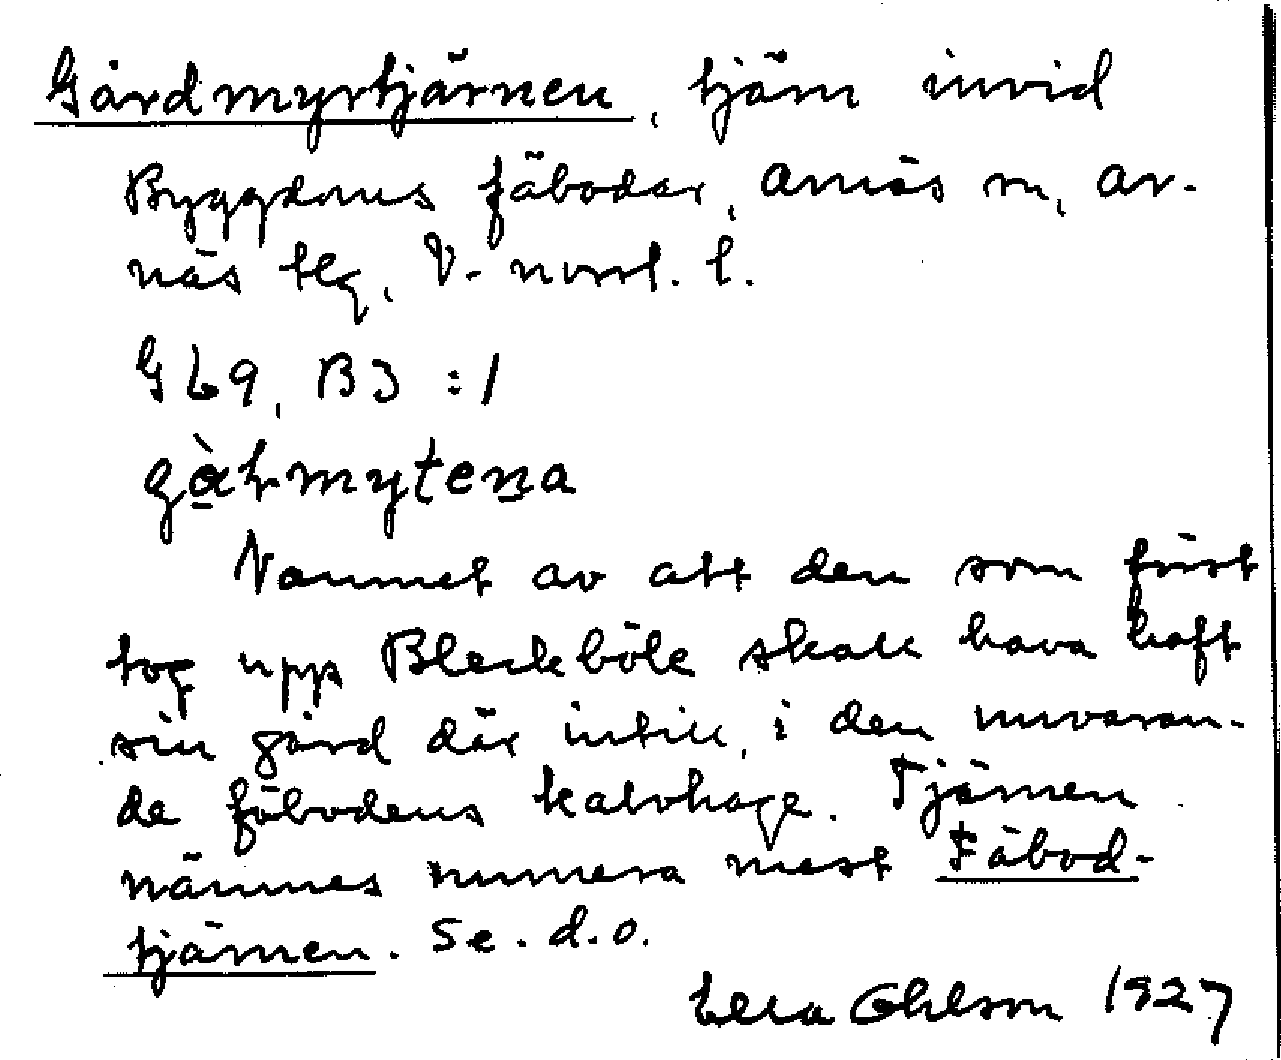 Gårdmyrtjärnen, tjärn invid
Byggdøns fäbodar, Arnäs sn, Ar-
näs tlg, V-norrl. l.
G 69, B3 :1
gàrmytena
Namnet av att den som först
tog upp Bleckböle skall hava haft
sin gård där intill, i den nuvaran-
de fäbodens kalvhage. Tjärnen
nämnes numera mest Fäbod-
tjärnen. Se. d.o.
Ohlson 1927